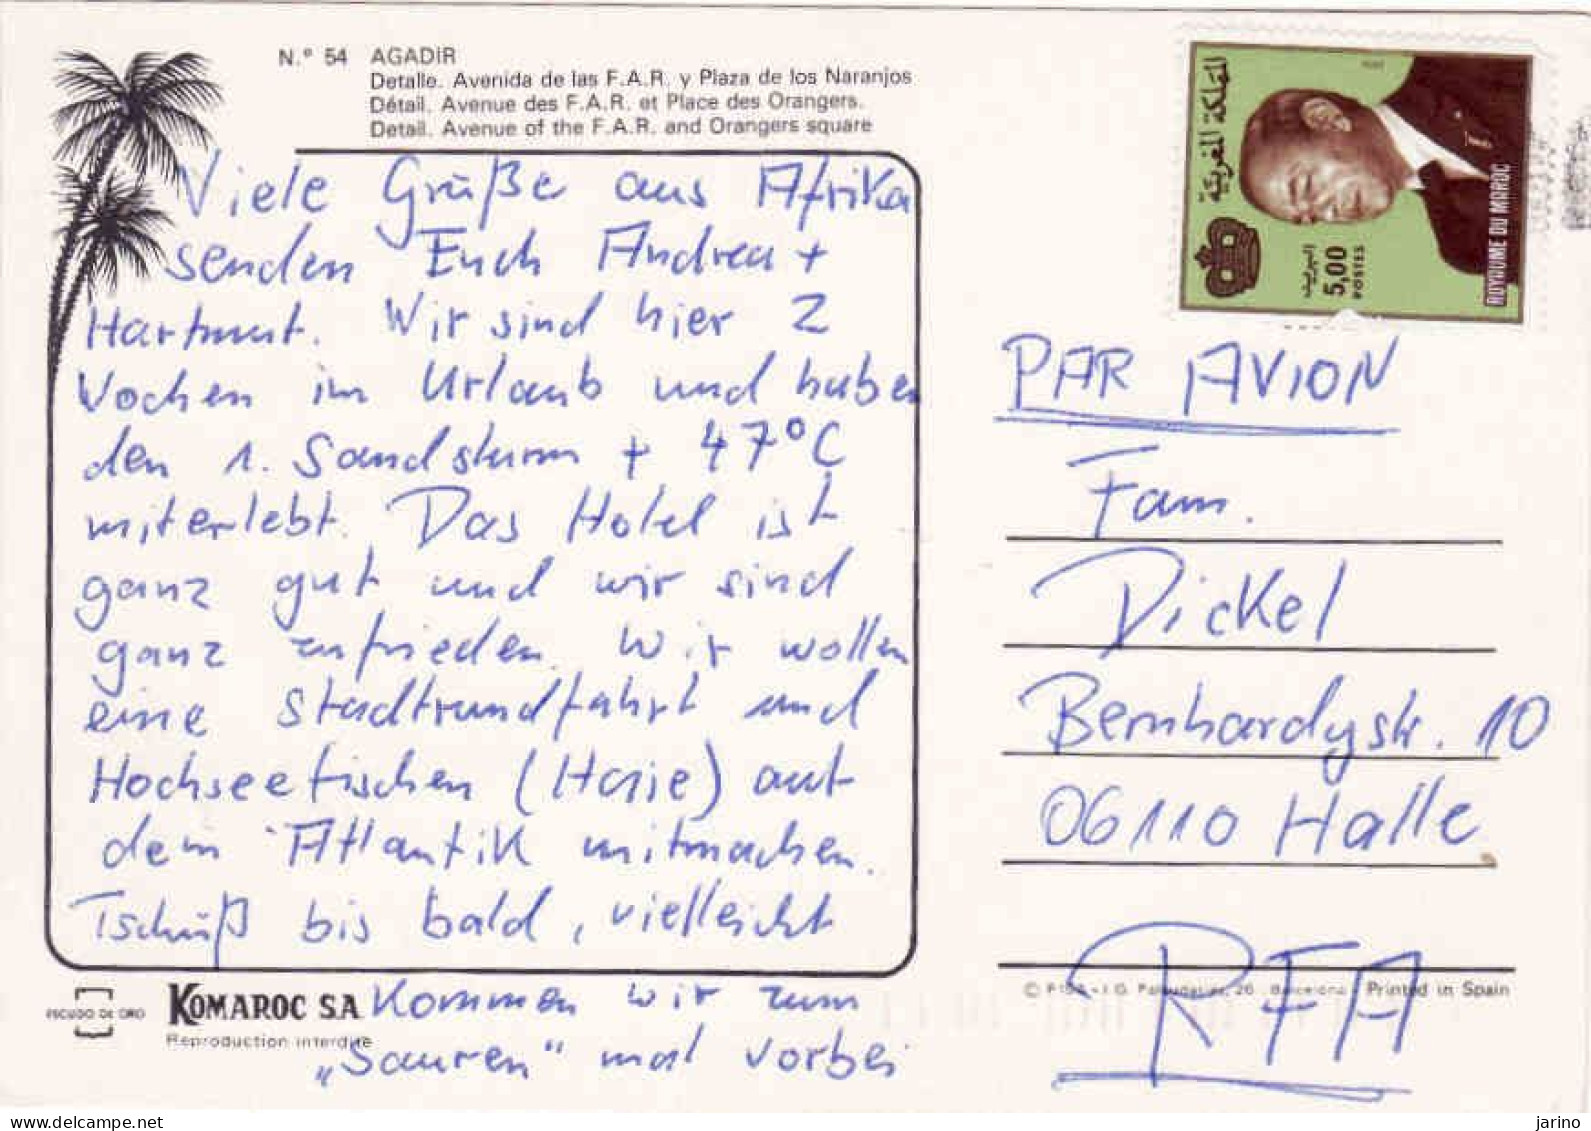 N.º 54 AGADIR
Detalle. Avenida de las F.A.R. y Plaza de los Naranjos
Détail. Avenue des F.A.R. et Place des Orangers.
Detail. Avenue of the F.A.R. and Orangers square
Viele Grüße aus Afrika
senden Euch Andrea +
Hartmut. Wir sind hier 2
Wochen im Urlaub und haben
den 1. Sandsturm + 47°C
miterlebt. Das Hotel ist
ganz gut und wir sind
ganz zufrieden. Wir wollen
eine Stadtrundfahrt und
Hochseefischen (Haie) auf
dem Atlantik mitmachen.
Tschüß bis bald, vielleicht
kommen wir zum
„Sauren“ mal vorbei
ESCUDO DE ORO
KOMAROC S.A.
Reproduction interdite
المملكة المغربية
البريد
5,00
POSTES
ROYAUME DU MAROC
PAR AVION
Fam.
Dickel
Bernhardystr. 10
06110 Halle
RFA
Barcelona - Printed in Spain
jarino